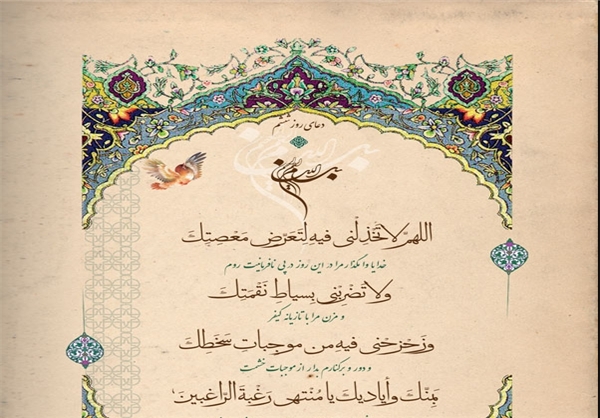 دعای روز ششم
بسم الله الرحمن الرحیم
اللهمّ لا تَخْذِلْنی فیهِ لِتَعَرّضِ مَعْصِیتِكَ
خدایا وا مگذار مرا در این روز در پی نافرمانیت روم
ولا تَضْرِبْنی بِسیاطِ نَقْمَتِكَ
و مزن مرا با تازیانه کیفر
وَزَحْزحْنی فیهِ من موجِباتِ سَخَطِكَ
و دور و برکنارم بدار از موجبات خشمت
بِمَنّكَ وأیادیكَ یا مُنْتهى رَغْبةَ الرّاغبینَ